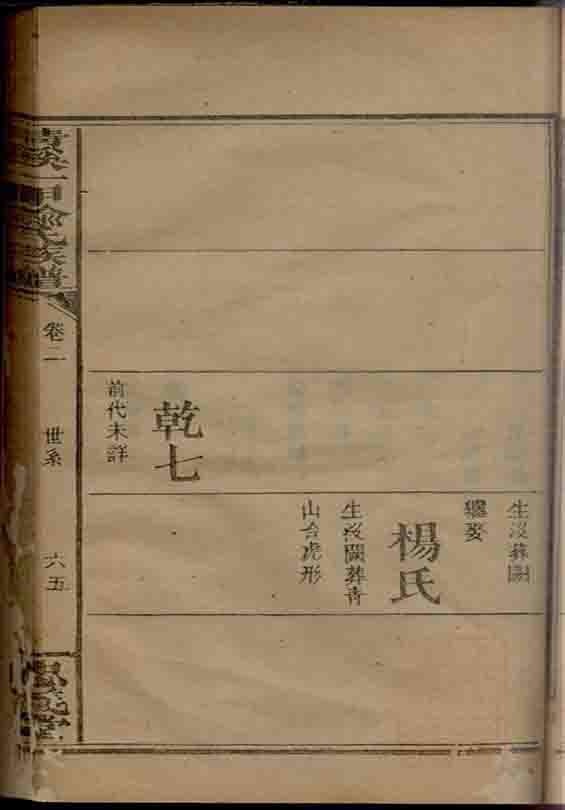 生歿葬闕
繼娶
楊氏
生歿闕葬青
山台虎形
乾七
前代未詳
氏族譜
卷二
世系
六五
堂